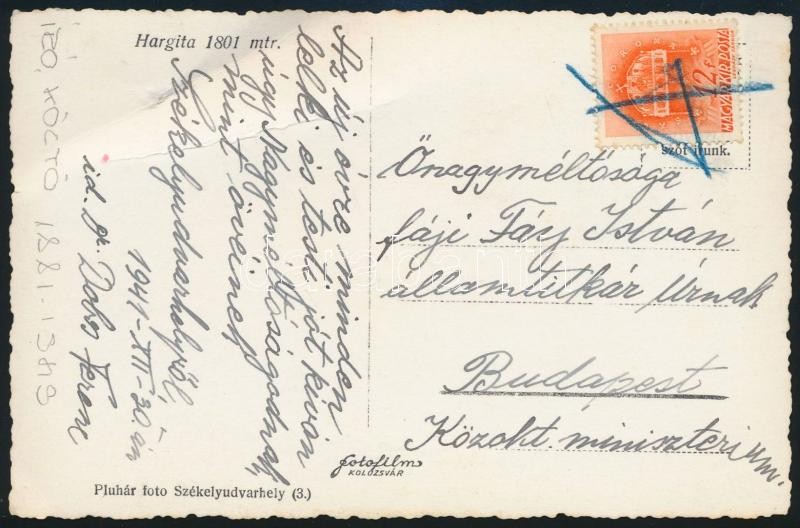 Hargita 1801 mtr.
Az új évre minden
lelki és testi jót kíván
úgy Nagyméltóságodnak,
mint övéinek
Székelyudvarhelyről,
1941-XII-30.-án
id. gr. Dobos Ferenc
ÍRÓ, KÖLTŐ 1881-1949
2 f
MAGYAR KIR. POSTA
szót írunk.
Őnagyméltósága
fáji Fáy István
államtitkár Úrnak
Budapest
Közokt. minisztérium.
fotofilm
KOLOZSVÁR
Pluhár foto Székelyudvarhely (3.)